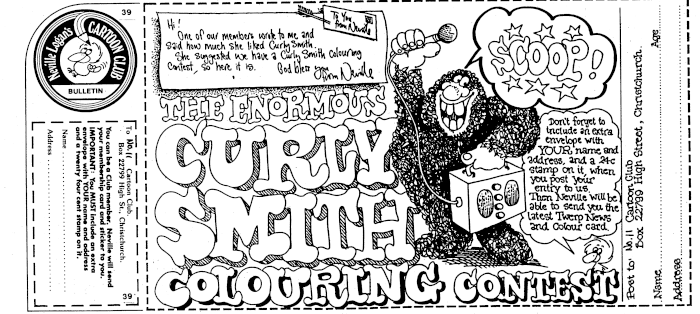 39
Neville Logan's
CARTOON CLUB
BULLETIN
To No.11 Cartoon Club.
Box 22799 High St., Christchurch.
You can be a club member. Neville will send
your membership card and sticker to you.
IMPORTANT: You MUST include an extra
envelope with YOUR name and address
and a twenty four cent stamp on it.
Name
Address
39
To You
from Neville
Hi!
One of our members wrote to me and
said how much she liked Curly Smith.
She suggested we have a Curly Smith Colouring
Contest, so here it is. God bless you
from Neville
THE ENORMOUS
CURLY
SMITH
COLOURING CONTEST
SCOOP!
Don't forget to
include an extra
envelope with
YOUR name and
address, and a 24c
stamp on it, when
you post your
entry to us.
Then Neville will be
able to send you the
latest Twerp News
and Colour card.
Post to No.11 Cartoon Club
Box 22799 High Street, Christchurch.
Name
Age
Address